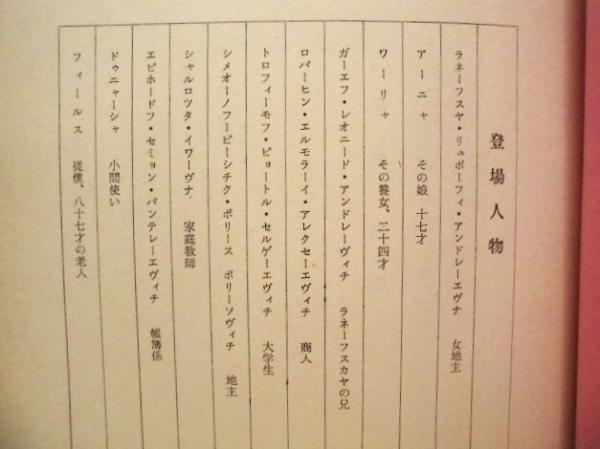 登場人物
ラネーフスヤ・リュボーフィ・アンドレーエヴナ 女地主
アーニャ その娘 十七才
ワーリャ その養女、二十四才
ガーエフ・レオニード・アンドレーヴィチ ラネーフスカヤの兄
ロパーヒン・エルモラーイ・アレクセーエヴィチ 商人
トロフィーモフ・ピョートル・セルゲーエヴィチ 大学生
シメオーノフ＝ピーシチク・ボリース ボリーソヴィチ 地主
シャルロッタ・イワーヴナ 家庭教師
エピホードフ・セミョン・パンテレーエヴィチ 帳簿係
ドゥニャーシャ 小間使い
フィールス 従僕、八十七才の老人